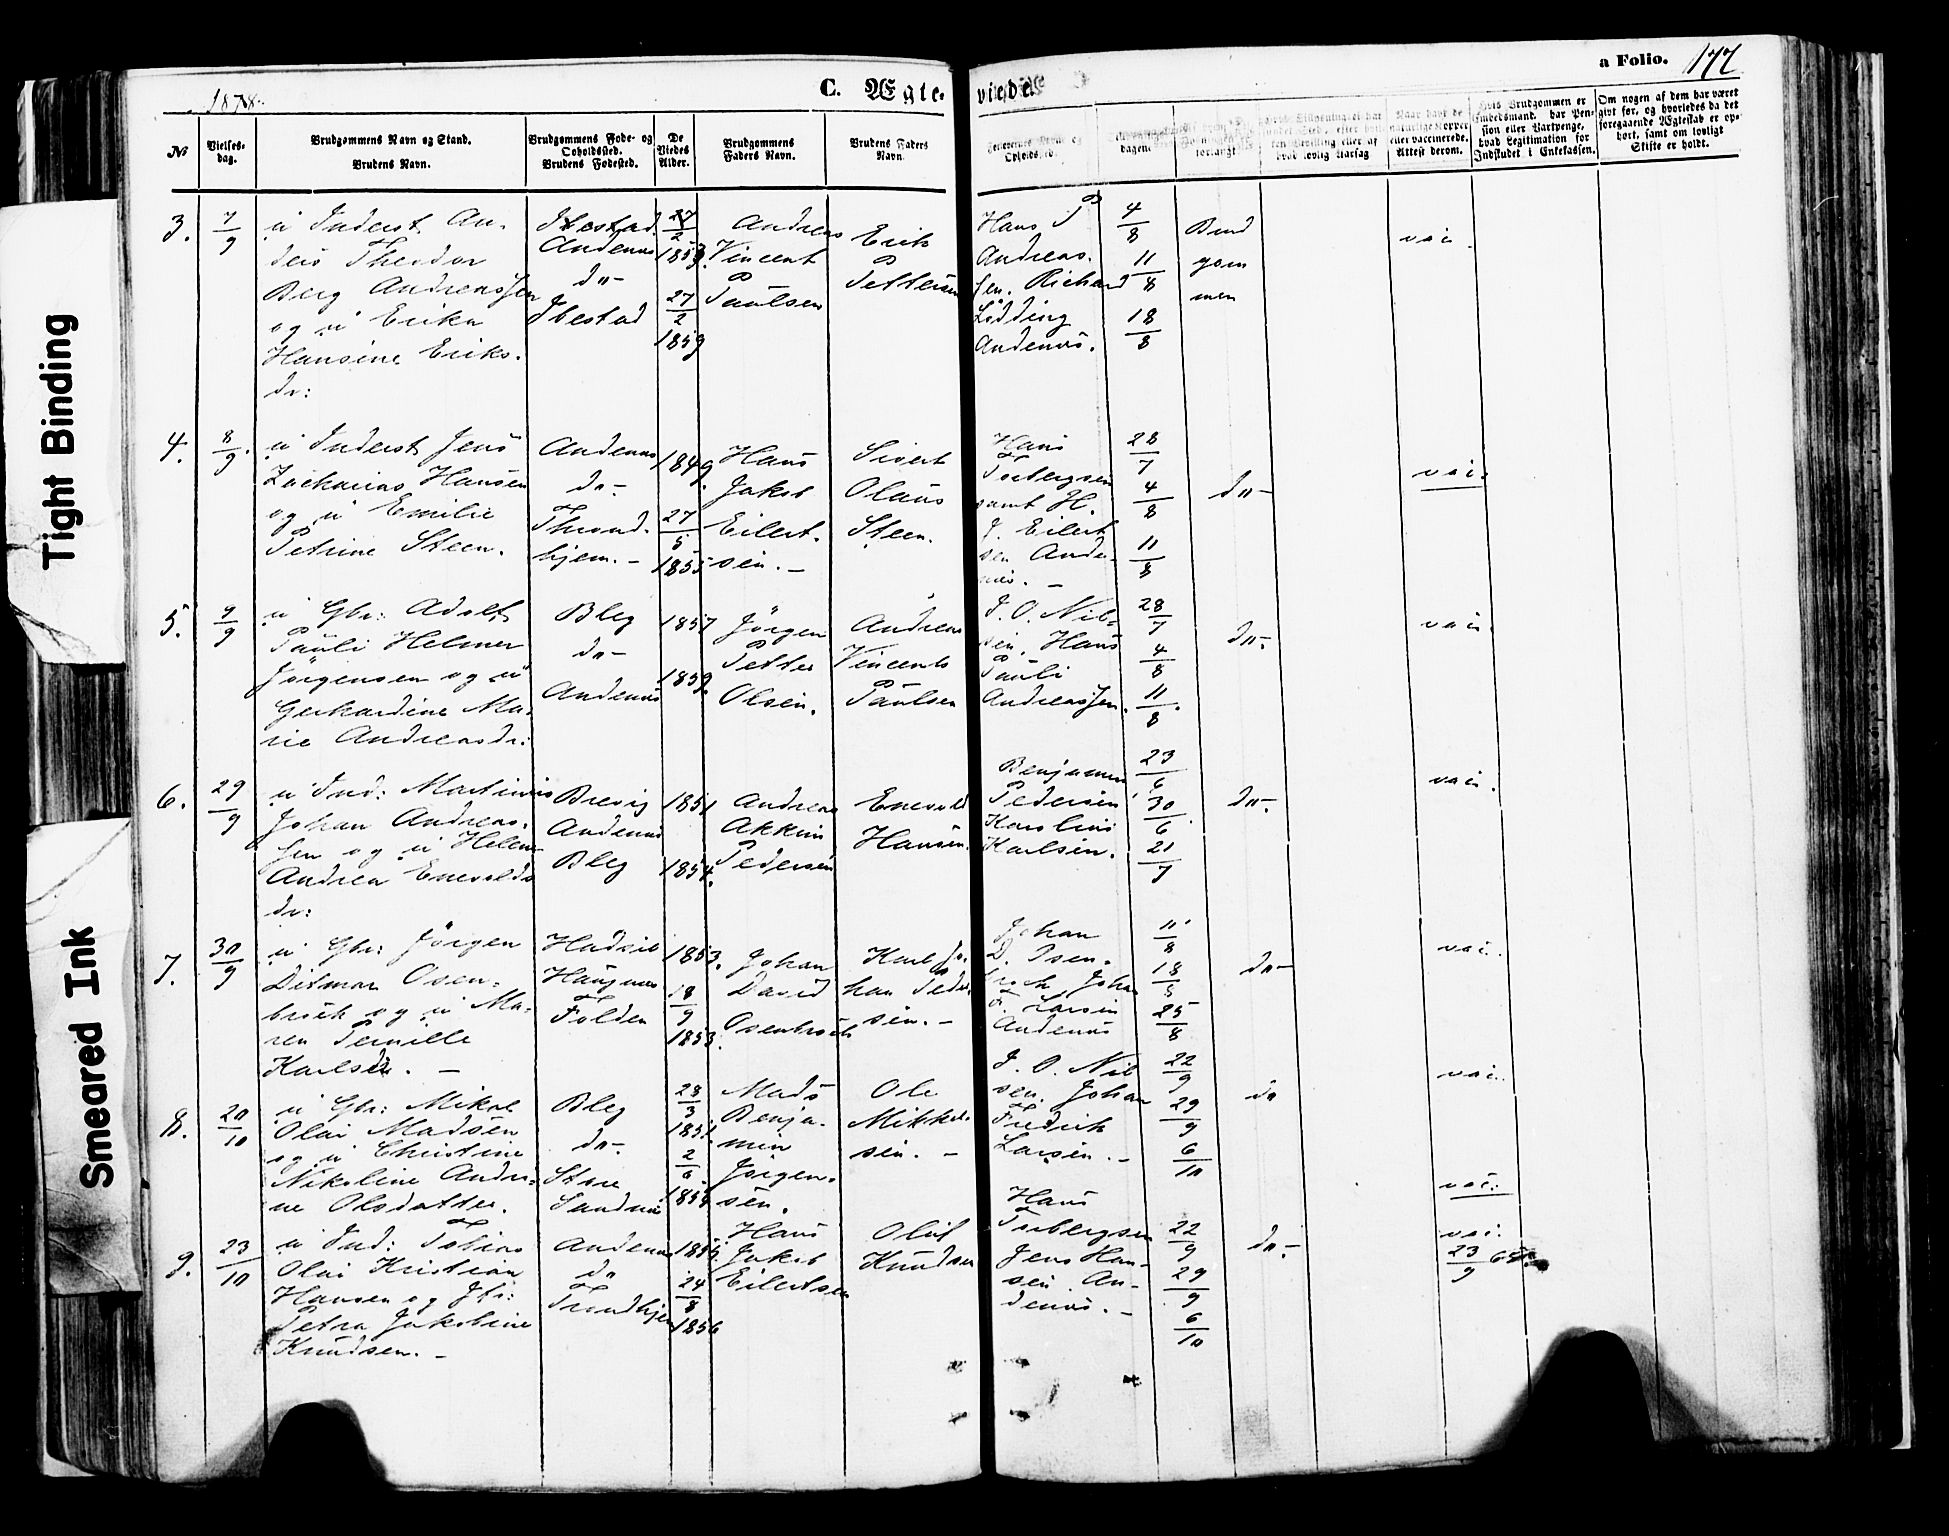 Tight Binding
Smeared Ink
1878.
C. Ægte-
viede
a Folio. 177
No
Vielses-
dag.
Brudgommens Navn og Stand.
Brudens Navn.
Brudgommens Føde- og
Opholdssted.
Brudens Fødested.
De
Viedes
Alder.
Brudgommens
Faders Navn.
Brudens Faders
Navn.
Opholdssted.
dagen.
forlangt
Naar havt de
naturlige Kopper
eller vaccinerede.
Attest derom.
Hvis Brudgommen er
Embedsmand, har Pen-
sion eller Vartpenge,
hvad Legitimation for
Indskudet i Enkekassen.
Om nogen af dem har været
gift før, og hvorledes da det
foregaaende Ægteskab er op-
hørt, samt om lovligt
Skifte er holdt.
3.
7/9
u Inderst An-
ders Theodor
Berg Andreassen
og u Erika
Hansine Eriks-
dr:
Ibestad
Andenæs
do-
Ibestad
27/2
1853.
27/2
1859
Andreas
Vincent
Paulsen
Erik
Pettersen
Hans P
Andreas-
sen. Richard
Lødding
Andenæs.
4/8
11/8
18/8
Brud
gom
men
vac.
4.
8/9.
u Inderst Jens
Zacharias Hansen
og u Emilie
Petrine Steen.
Andenæs
do-
Thrond-
hjem. -
1849.
27/5
1855
Hans
Jakob
Eilert-
sen. -
Sivert
Olaus
Steen.
Hans
Torbergsen
samt H.
J. Eilert
sen Ande-
næs. -
28/7
4/8
11/8
do-
vac.
5.
9/9
u Gbr: Adolf
Pauli Helmer
Jørgensen og u
Gerhardine Ma-
rie Andreasdr:
Bleg
do-
Andenæs
1857
1859.
Jørgen
Petter
Olsen.
Andreas
Vincents
Paulsen
J. O. Nil-
sen. Hans
Pauli
Andreassen.
28/7
4/8
11/8.
do-
vac.
6.
29/9
u Ind: Martinus
Johan Andreas-
sen og u Helene
Andrea Enevolds
dr:
Brevig
Andenæs
Bleg
1851
1854.
Andreas
Akkim
Pedersen
Enevold
Hansen.
Benjamin
Pedersen
Karolius
Karlsen.
23/6
30/6
21/7
do-
vac.
7.
30/9
u Gbr: Jørgen
Ditmar Osen-
broch og u Ma-
ren Pernille
Karlsdr. -
Hadsel
Haugnæs
Folden
1853.
18/9
1853.
Johan
David
Osenbroch
Karl Jo-
han Peder-
sen. -
Johan
D. Osen-
broch Johan
F. Larsen
Andenæs
11/8
18/8
25/8
do-
vac.
8.
20/10
u Gbr: Mikal
Olai Madsen
og u Christine
Nikoline Andri-
ne Olsdatter.
Bleg
do-
Store
Sandnæs
23/3
1851
2/6
Mads
Benja-
min
Jørgen-
sen.
Ole
Mikkel-
sen. -
J. O. Nil
sen. Johan
Fredrik
Larsen. -
22/9
29/9
6/10
do
vac.
vac:
9.
23/10
u Ind: Tobias
Olai Kristian
Hansen og Jfr:
Petra Jakobine
Knudsen. -
Andenæs
do
Trondhjem
24/8
1856
Hans
Jakob
Eilertsen
Oluf
Knudsen
Hans
Torbergsen
Jens Han-
sen An-
denæs. -
22/9
29/9
6/10
do-
vac.
23/9